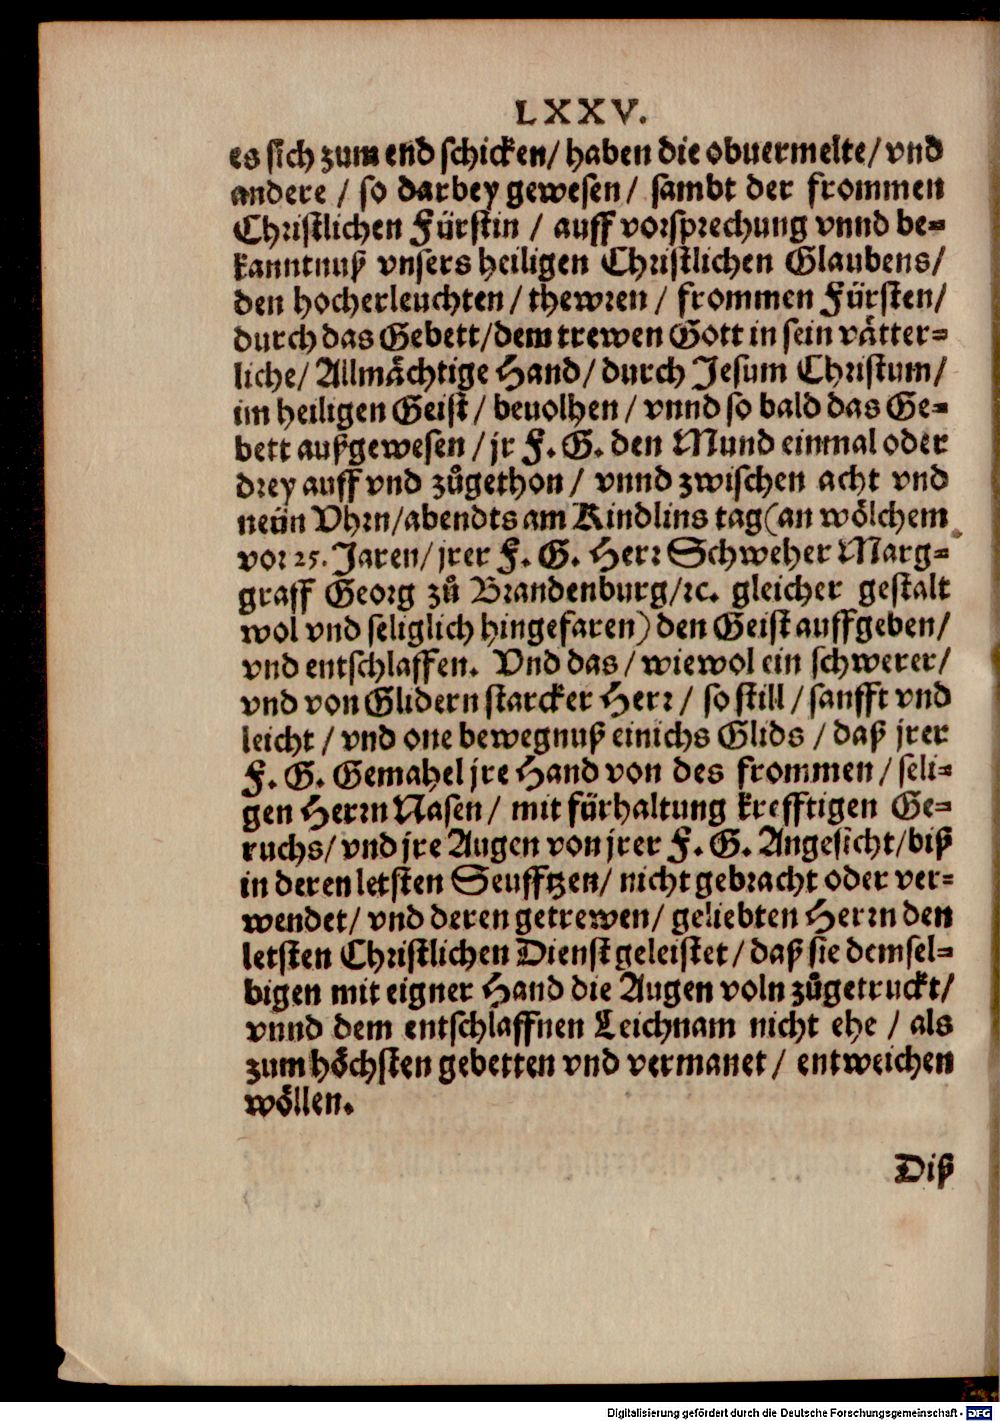 LXXV.
es sich zum end schicken/ haben die obuermelte/ vnd
andere / so darbey gewesen/ sambt der frommen
Christlichen Fürstin / auff vorsprechung vnnd be-
kanntnuß vnsers heiligen Christlichen Glaubens/
den hocherleuchten / thewren / frommen Fürsten/
durch das Gebett/ dem trewen Gott in sein vätter-
liche/ Allmächtige Hand/ durch Jesum Christum/
im heiligen Geist / beuolhen / vnnd so bald das Ge-
bett außgewesen / jr F. G. den Mund einmal oder
drey auff vnd zůgethon / vnnd zwischen acht vnd
neün Vhrn/ abendts am Kindlins tag (an wölchem
vor 25. Jaren/ jrer F. G. Herr Schweher Marg-
graff Georg zů Brandenburg/ ꝛc. gleicher gestalt
wol vnd seliglich hingefaren) den Geist auffgeben/
vnd entschlaffen. Vnd das / wiewol ein schwerer/
vnd von Glidern starcker Herr / so still / sanfft vnd
leicht / vnd one bewegnuß einichs Glids / daß jrer
F. G. Gemahel jre Hand von des frommen / seli-
gen Herrn Nasen/ mit fürhaltung krefftigen Ge-
ruchs/ vnd jre Augen von jrer F. G. Angesicht/ biß
in deren letsten Seufftzen/ nicht gebracht oder ver-
wendet/ vnd deren getrewen/ geliebten Herrn den
letsten Christlichen Dienst geleistet / daß sie demsel-
bigen mit eigner Hand die Augen voln zůgetruckt/
vnnd dem entschlaffnen Leichnam nicht ehe / als
zum höchsten gebetten vnd vermanet / entweichen
wöllen.
Diß
Digitalisierung gefördert durch die Deutsche Forschungsgemeinschaft - DFG